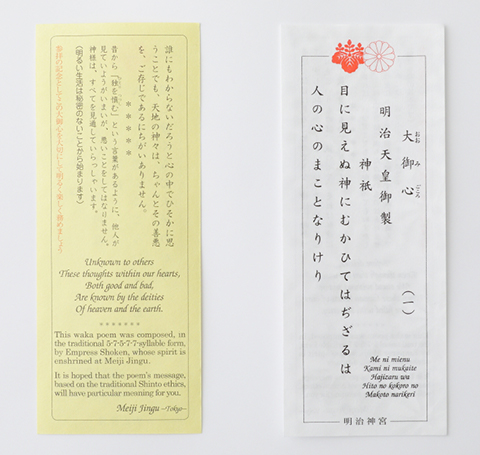 誰にもわからないだろうと心の中でひそかに思
うことでも、天地の神々は、ちゃんとその善悪
を、ご存じであるにちがいありません。
＊＊＊＊＊
昔から「独を慎む」という言葉があるように、他人が
見ていようがいまいが、悪いことをしてはなりません。
神様は、すべてを見通していらっしゃいます。
（明るい生活は秘密のないことから始まります）
参拝の記念としてこの大御心を大切にして明るく楽しく務めましょう
Unknown to others
These thoughts within our hearts,
Both good and bad,
Are known by the deities
Of heaven and the earth.
*******
This waka poem was composed, in
the traditional 5-7-5-7-7-syllable form,
by Empress Shoken, whose spirit is
enshrined at Meiji Jingu.
It is hoped that the poem's message,
based on the traditional Shinto ethics,
will have particular meaning for you.
Meiji Jingu ~Tokyo~
大御心
おおみごころ
（一）
明治天皇御製
神祇
目に見えぬ神にむかひてはぢざるは
人の心のまことなりけり
Me ni mienu
Kami ni mukaite
Hajizaru wa
Hito no kokoro no
Makoto narikeri
明治神宮